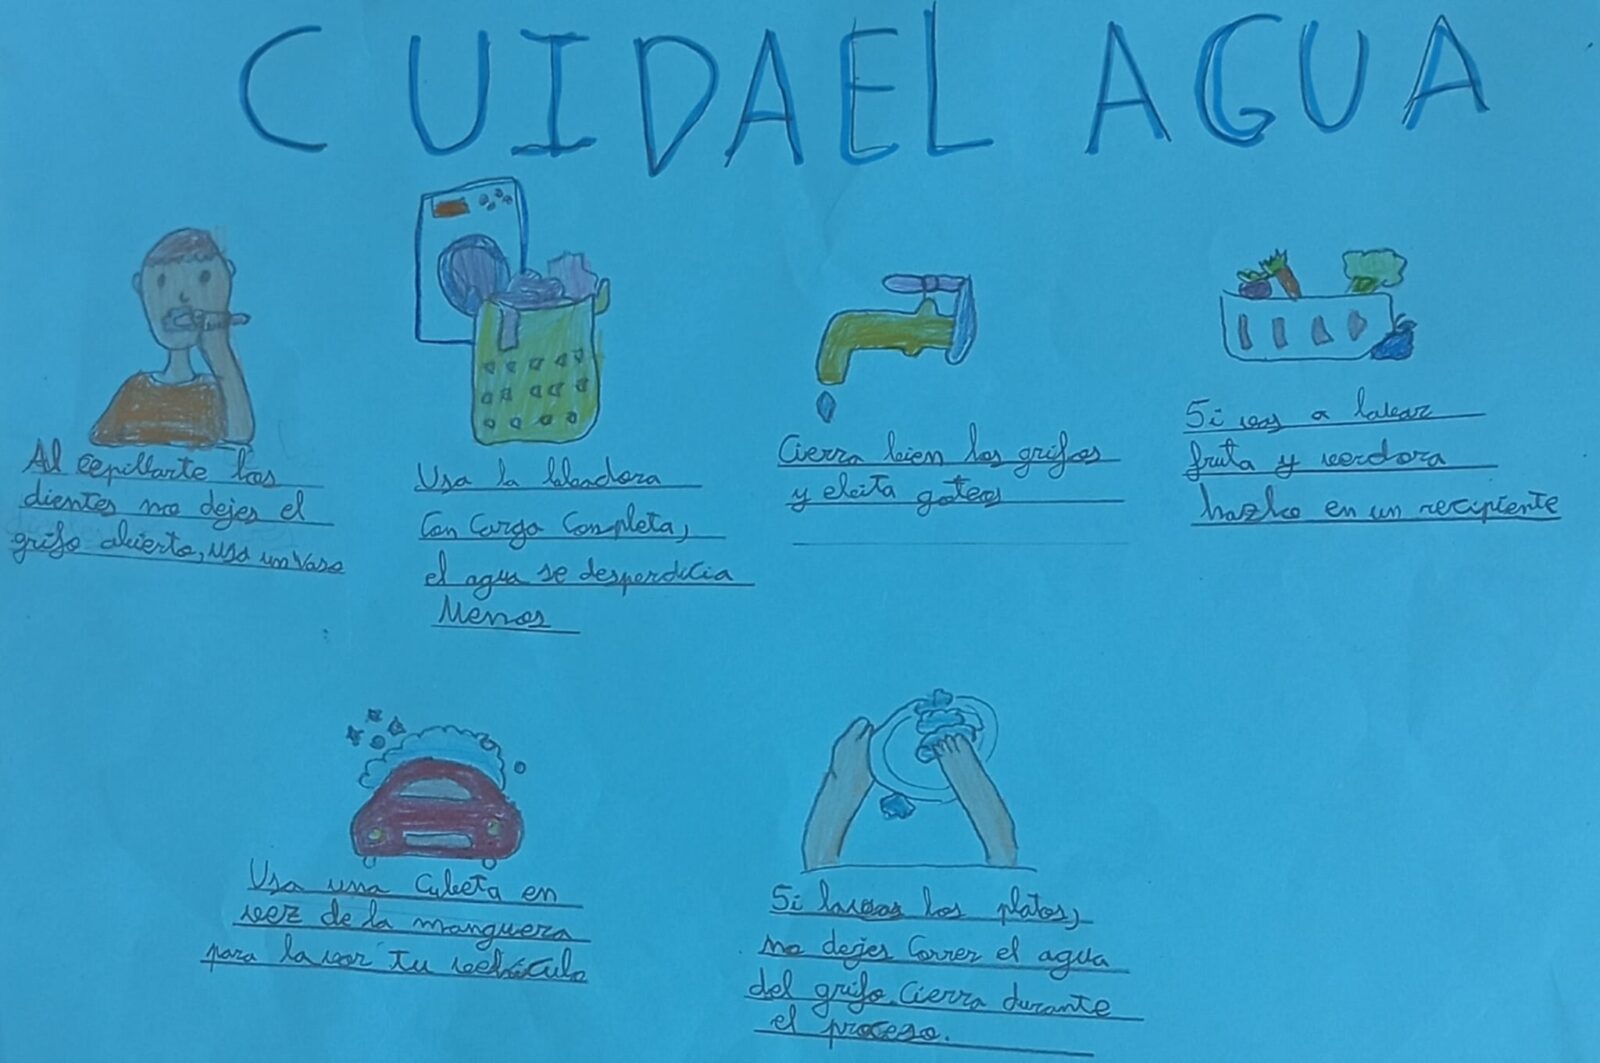 CUIDA EL AGUA
Al cepillarte los
dientes no dejes el
grifo abierto, usa un vaso
Usa la lavadora
Con Carga Completa,
el agua se desperdicia
Menos
Cierra bien los grifos
y evita goteos
Si vas a lavar
fruta y verdora
hazlo en un recipiente
Usa una Cubeta en
vez de la manguera
para lavar tu vehículo
Si lavas los platos,
no dejes Correr el agua
del grifo. Cierra durante
el proceso.